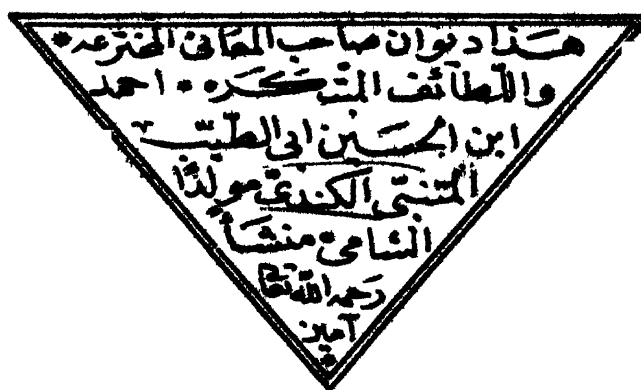 هذا ديوان صاحب المعاني المخترعه *
واللطآئف المبتكره * * احمد
ابن الحسين ابى الطيّب
المتنبّى الكندىّ مولدًا
الشامىّ منشأً
رحمه الله تعا
آمين